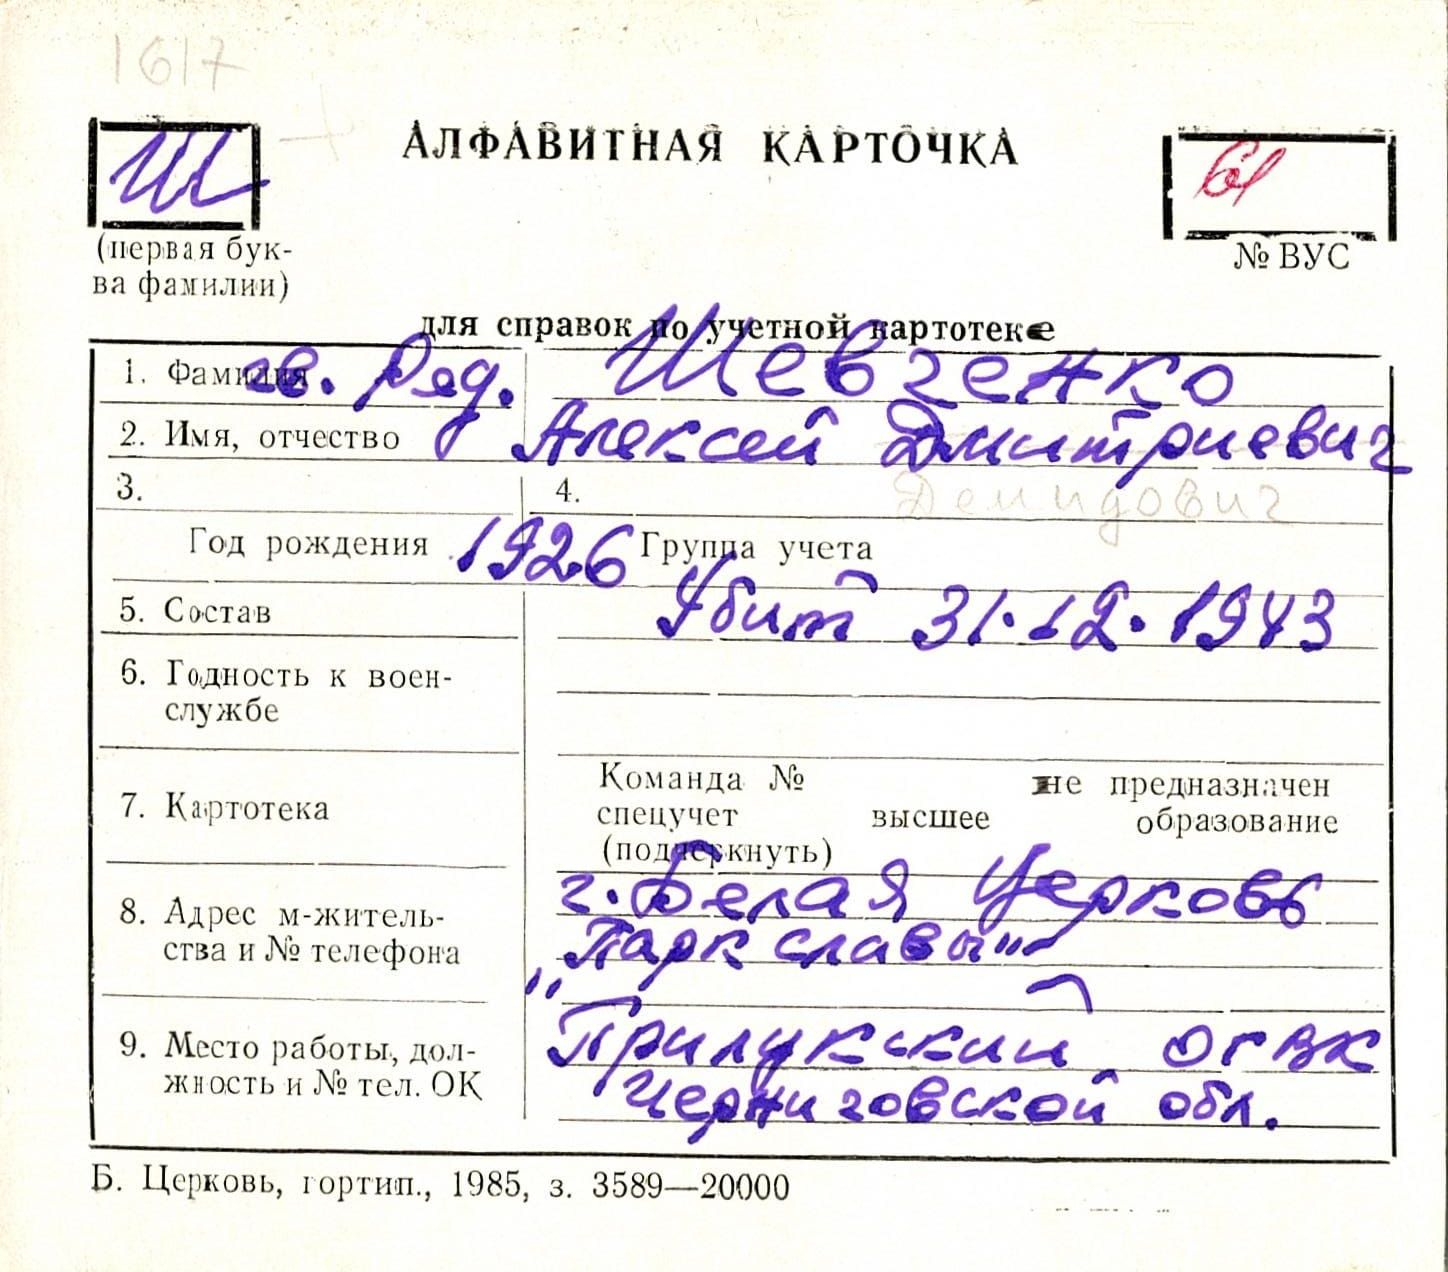 1617
Ш
АЛФАВИТНАЯ КАРТОЧКА
61
(первая бук-
ва фамилии)
№ ВУС
для справок по учетной картотеке
1. Фамилия гв. ряд. Шевченко
2. Имя, отчество Алексей Дмитриевич
3. 4. Демидович
Год рождения 1926 Группа учета
5. Состав Убит 31.12.1943
6. Годность к воен-
службе
Команда № не предназначен
7. Картотека спецучет высшее образование
(подчеркнуть)
г. Белая Церковь
8. Адрес м-житель-
ства и № телефона
"Парк славы"
9. Место работы, дол-
жность и № тел. ОК
Прилукский ОГВК
Черниговской обл.
Б. Церковь, гортип., 1985, з. 3589—20000